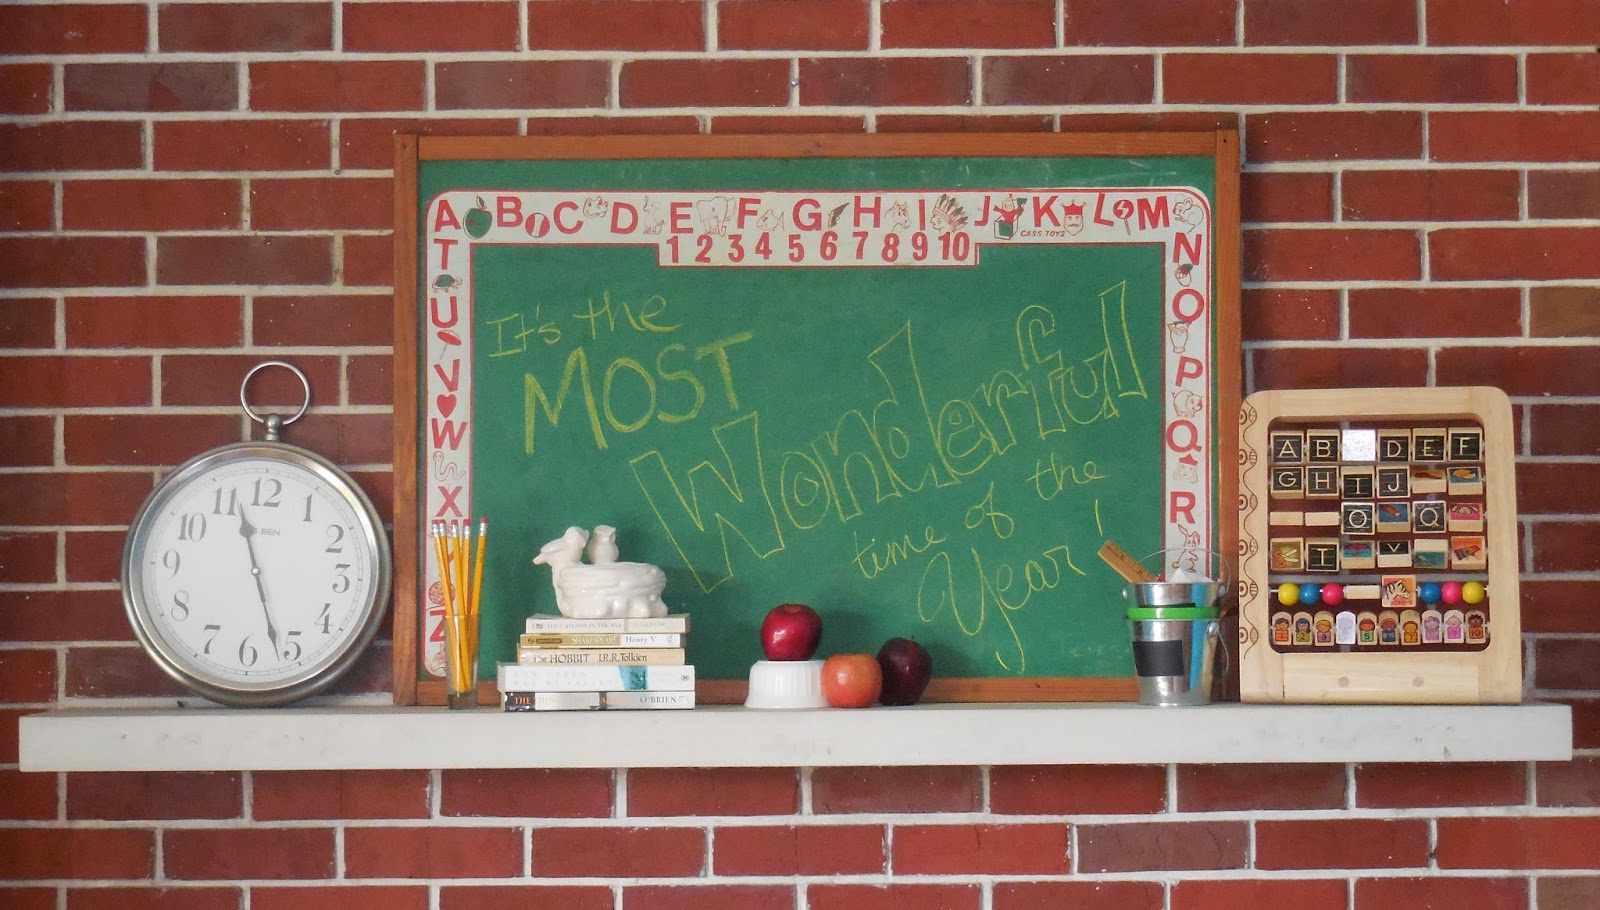 A B C D E F G H I J K L M
CASS TOYS
1 2 3 4 5 6 7 8 9 10
T
U
V
W
X
Z
N
O
P
Q
R
It's the
MOST
Wonderful
time of the
Year!
11 12 1
10 2
9 3
8
7 6 5
SHAKESPEARE Henry V
The HOBBIT J.R.R. Tolkien
THE O'BRIEN
A B D E F
G H I J
O Q
I V